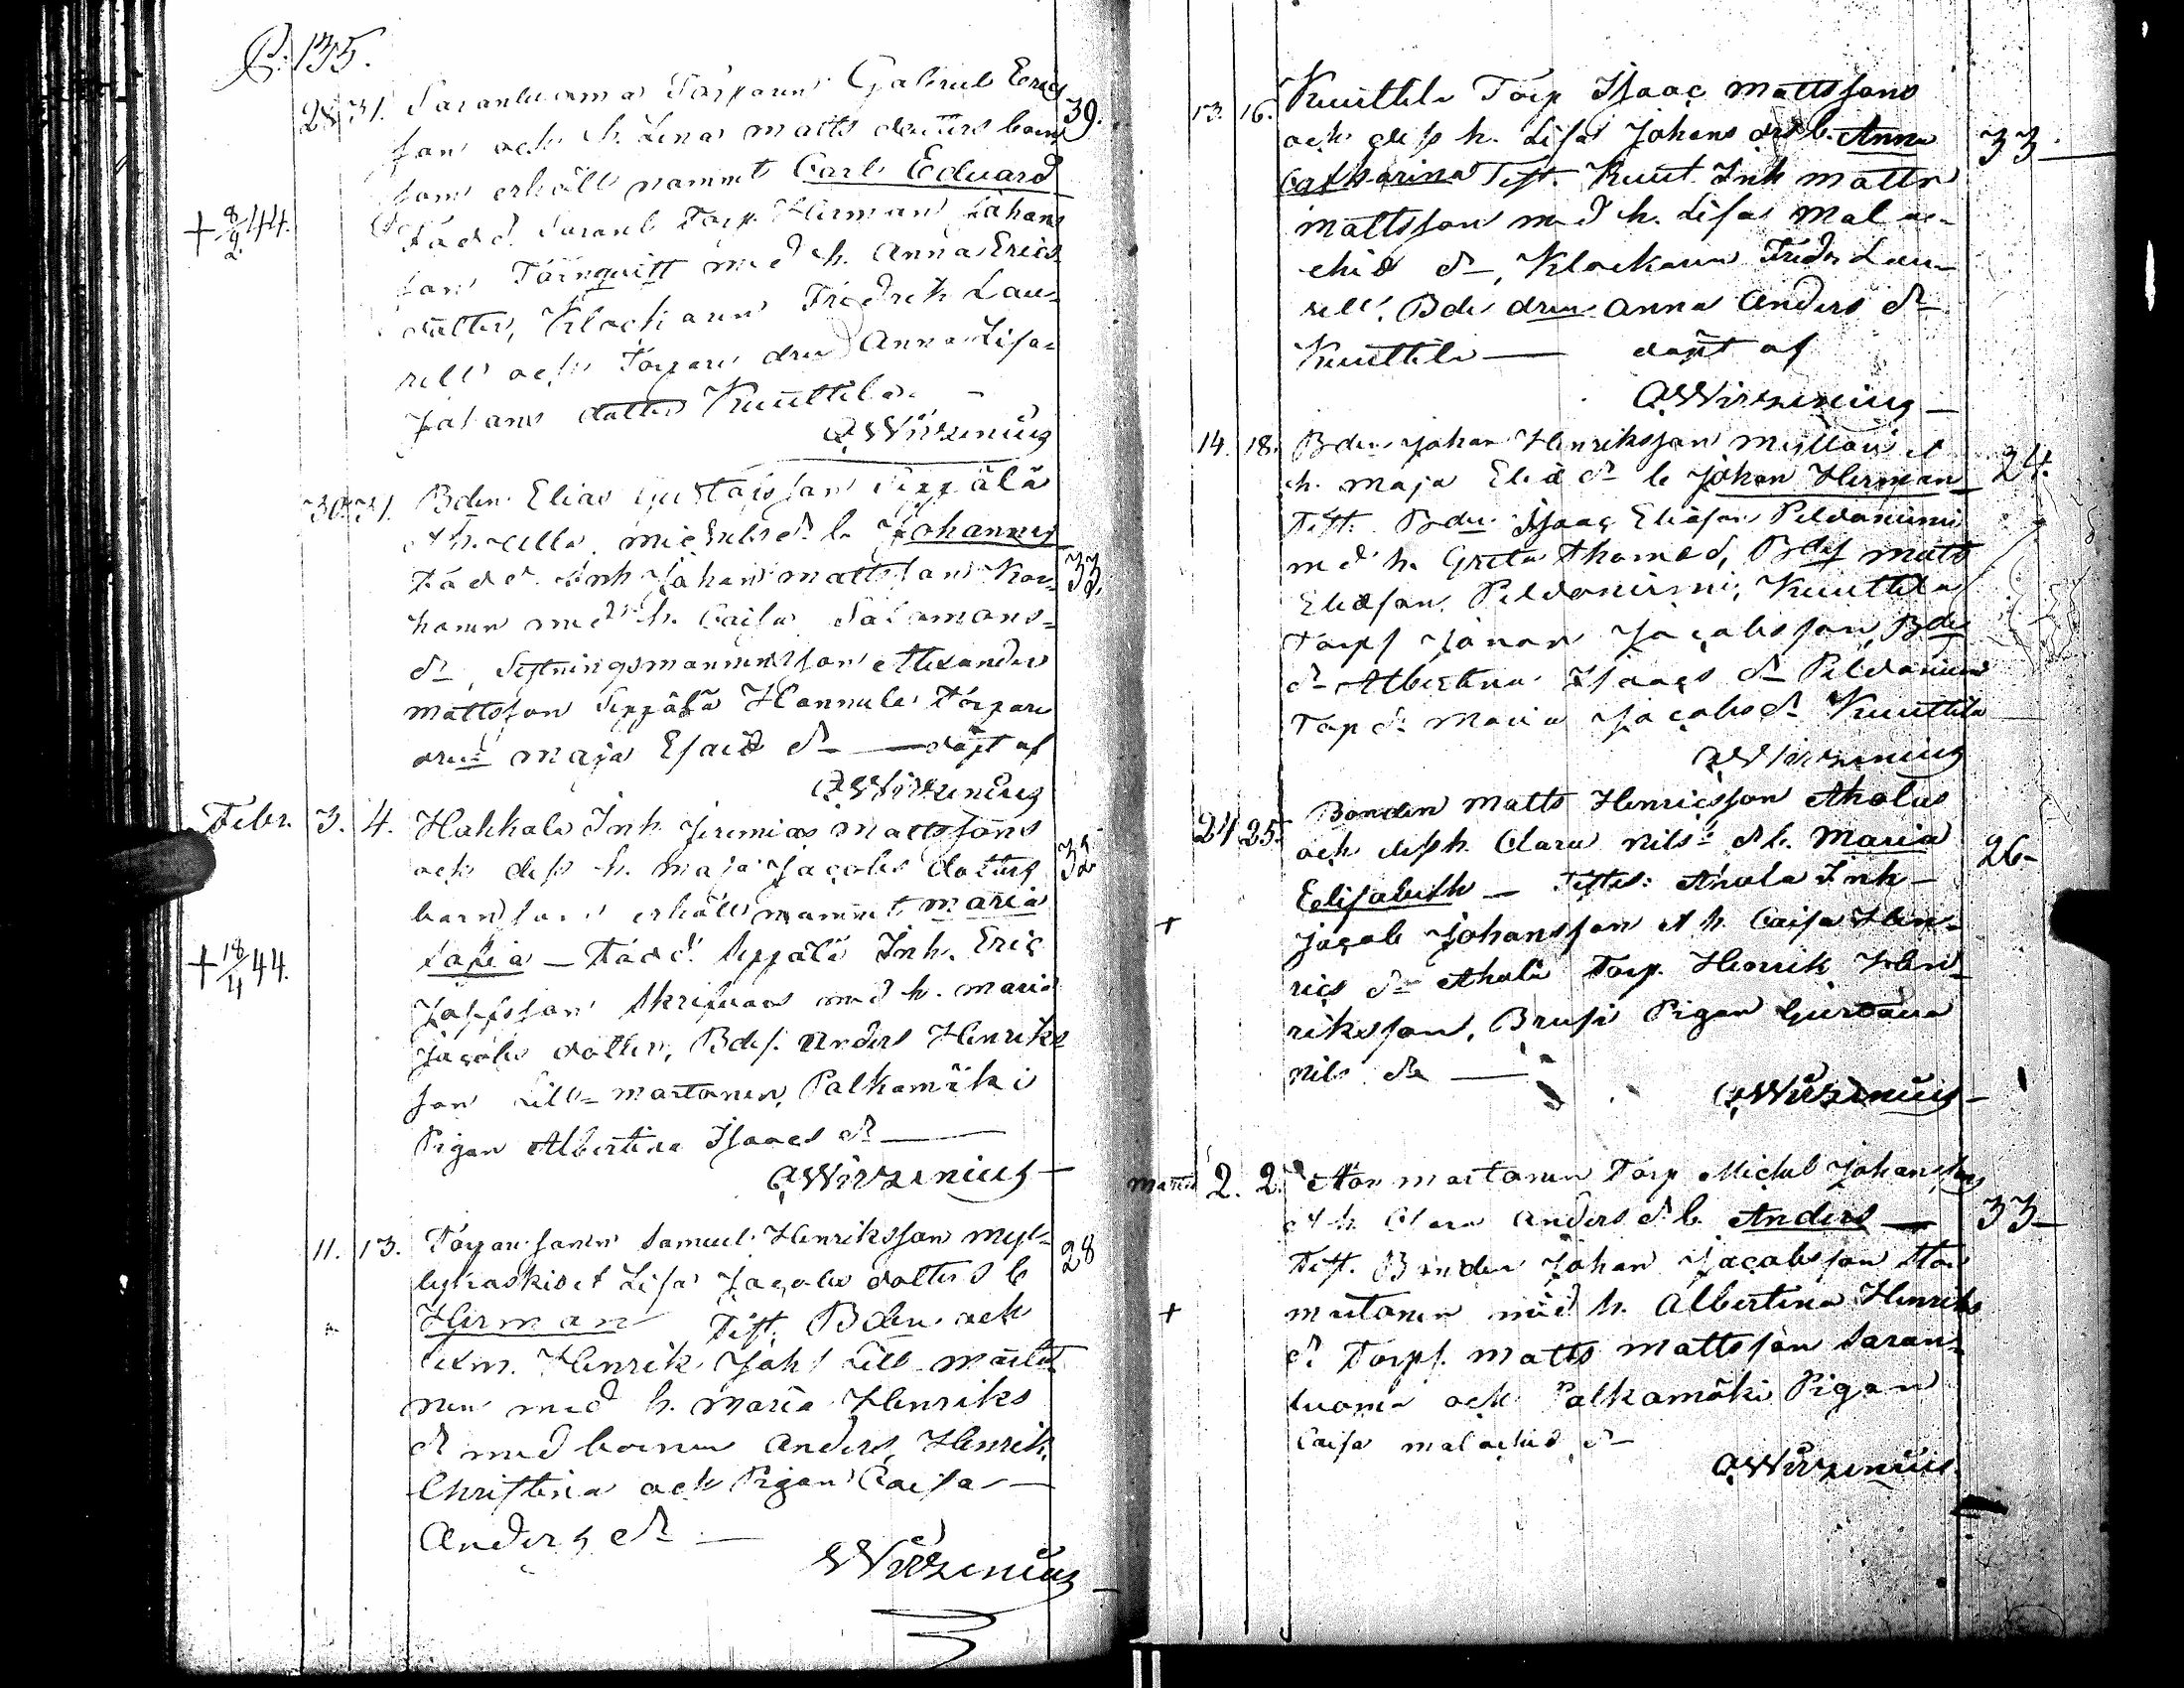 P. 135.
28 31. Saranluoma Torparen Gabriel Erics 39.
son och h. Lena Matts dotters barn
som erhöll namnet Carl Eduard
+ 8/2 44. Fadd. Saranl. Torp. Herman Johans
son Törnqvist med h. Anna Erics
dotter, Klockaren Fredrik Lau-
rell och Torpare dren Anna Lisa
Johans dotter Kuuttila. –
A Wirzenius
30 31. Bden Elias Gustafsson Seppälä
et h. Ulla Michels dr b. Johannes
Fadd. Inh Johan Mattsson Kor- 33.
honen med h. Caisa Salomons-
dr, Sexmannen Alexander
Mattsson Seppälä Hannula Torpare
dren Maja Esaiæ dr — döpt af
A Wirzenius
Febr. 3. 4. Hakkala Inh. Jeremias Mattssons
och dess h. Maja Jacobs dotters 32
barn som erhöll namnet Maria
+ 18/4 44. Sofia – Fadd. Seppälä Inh. Eric
med h. Maria
Jacobs dotter, Bdes. Anders Henriks-
son Lill-Martonen, Palkamäki
Pigan Albertina Isaacs dr —
A Wirzenius –
11. 13. Torpare sonen Samuel Henriksson Myl- 28
lykoski et Lisa Jacobs dotters b
Herman Test. Bden och
Sexm. Henrik Johs Lill Marto-
nen med h. Maria Henriks
dr med barnen Anders, Henrik,
Christina och Pigan Caisa —
Anders dr —
Wirzenius –
13. 16. Kuuttila Torp Isaac Mattssons
och dess h. Lisa Johans drs b. Anna 33.
Catharina Test. Kuut. Inh Matts
Mattsson med h. Lisa Mala-
chiæ dr, Klockaren Fredr Lau-
rell, Bde dren Anna Anders dr
Kuuttila — döpt af
A Wirzenius –
14. 18. Bden Johan Henriksson Myllari et
h. Maja Eliæ dr b Johan Herman 24.
Test. Bden Isaac Eliæson Peldoniemi
med h. Greta Thomæ d, Bdes Matts
Eliæson Peldoniemi, Kuuttila
Torps Johan Jacobsson, Bde
dr Albertina Isaacs dr Peldoniemi
Torp dr Maria Jacobs dr Kuuttila
A Wirzenius
24 25. Bonden Matts Henricsson Ahola
och dess h. Clara Nils d b. Maria 26-
Elisabeth – Testes: Ahola Inh –
+ Jacob Johansson et h. Caisa Hen-
rics dr Ahola Torp. Henrik Hen-
riksson, Brusi Pigan Gustava
Nils dr —
A Wirzenius –
Martii 2. 2. Stor Martonen Torp Michel Johansson
et h. Clara Anders d. b. Anders — 33–
Test. Bonden Johan Jacobsson Stor
+ Martonen med h. Albertina Henriks
dr Torps. Matts Mattsson Saran-
luoma och Palkamäki Pigan
Caisa Malachiæ dr –
A Wirzenius